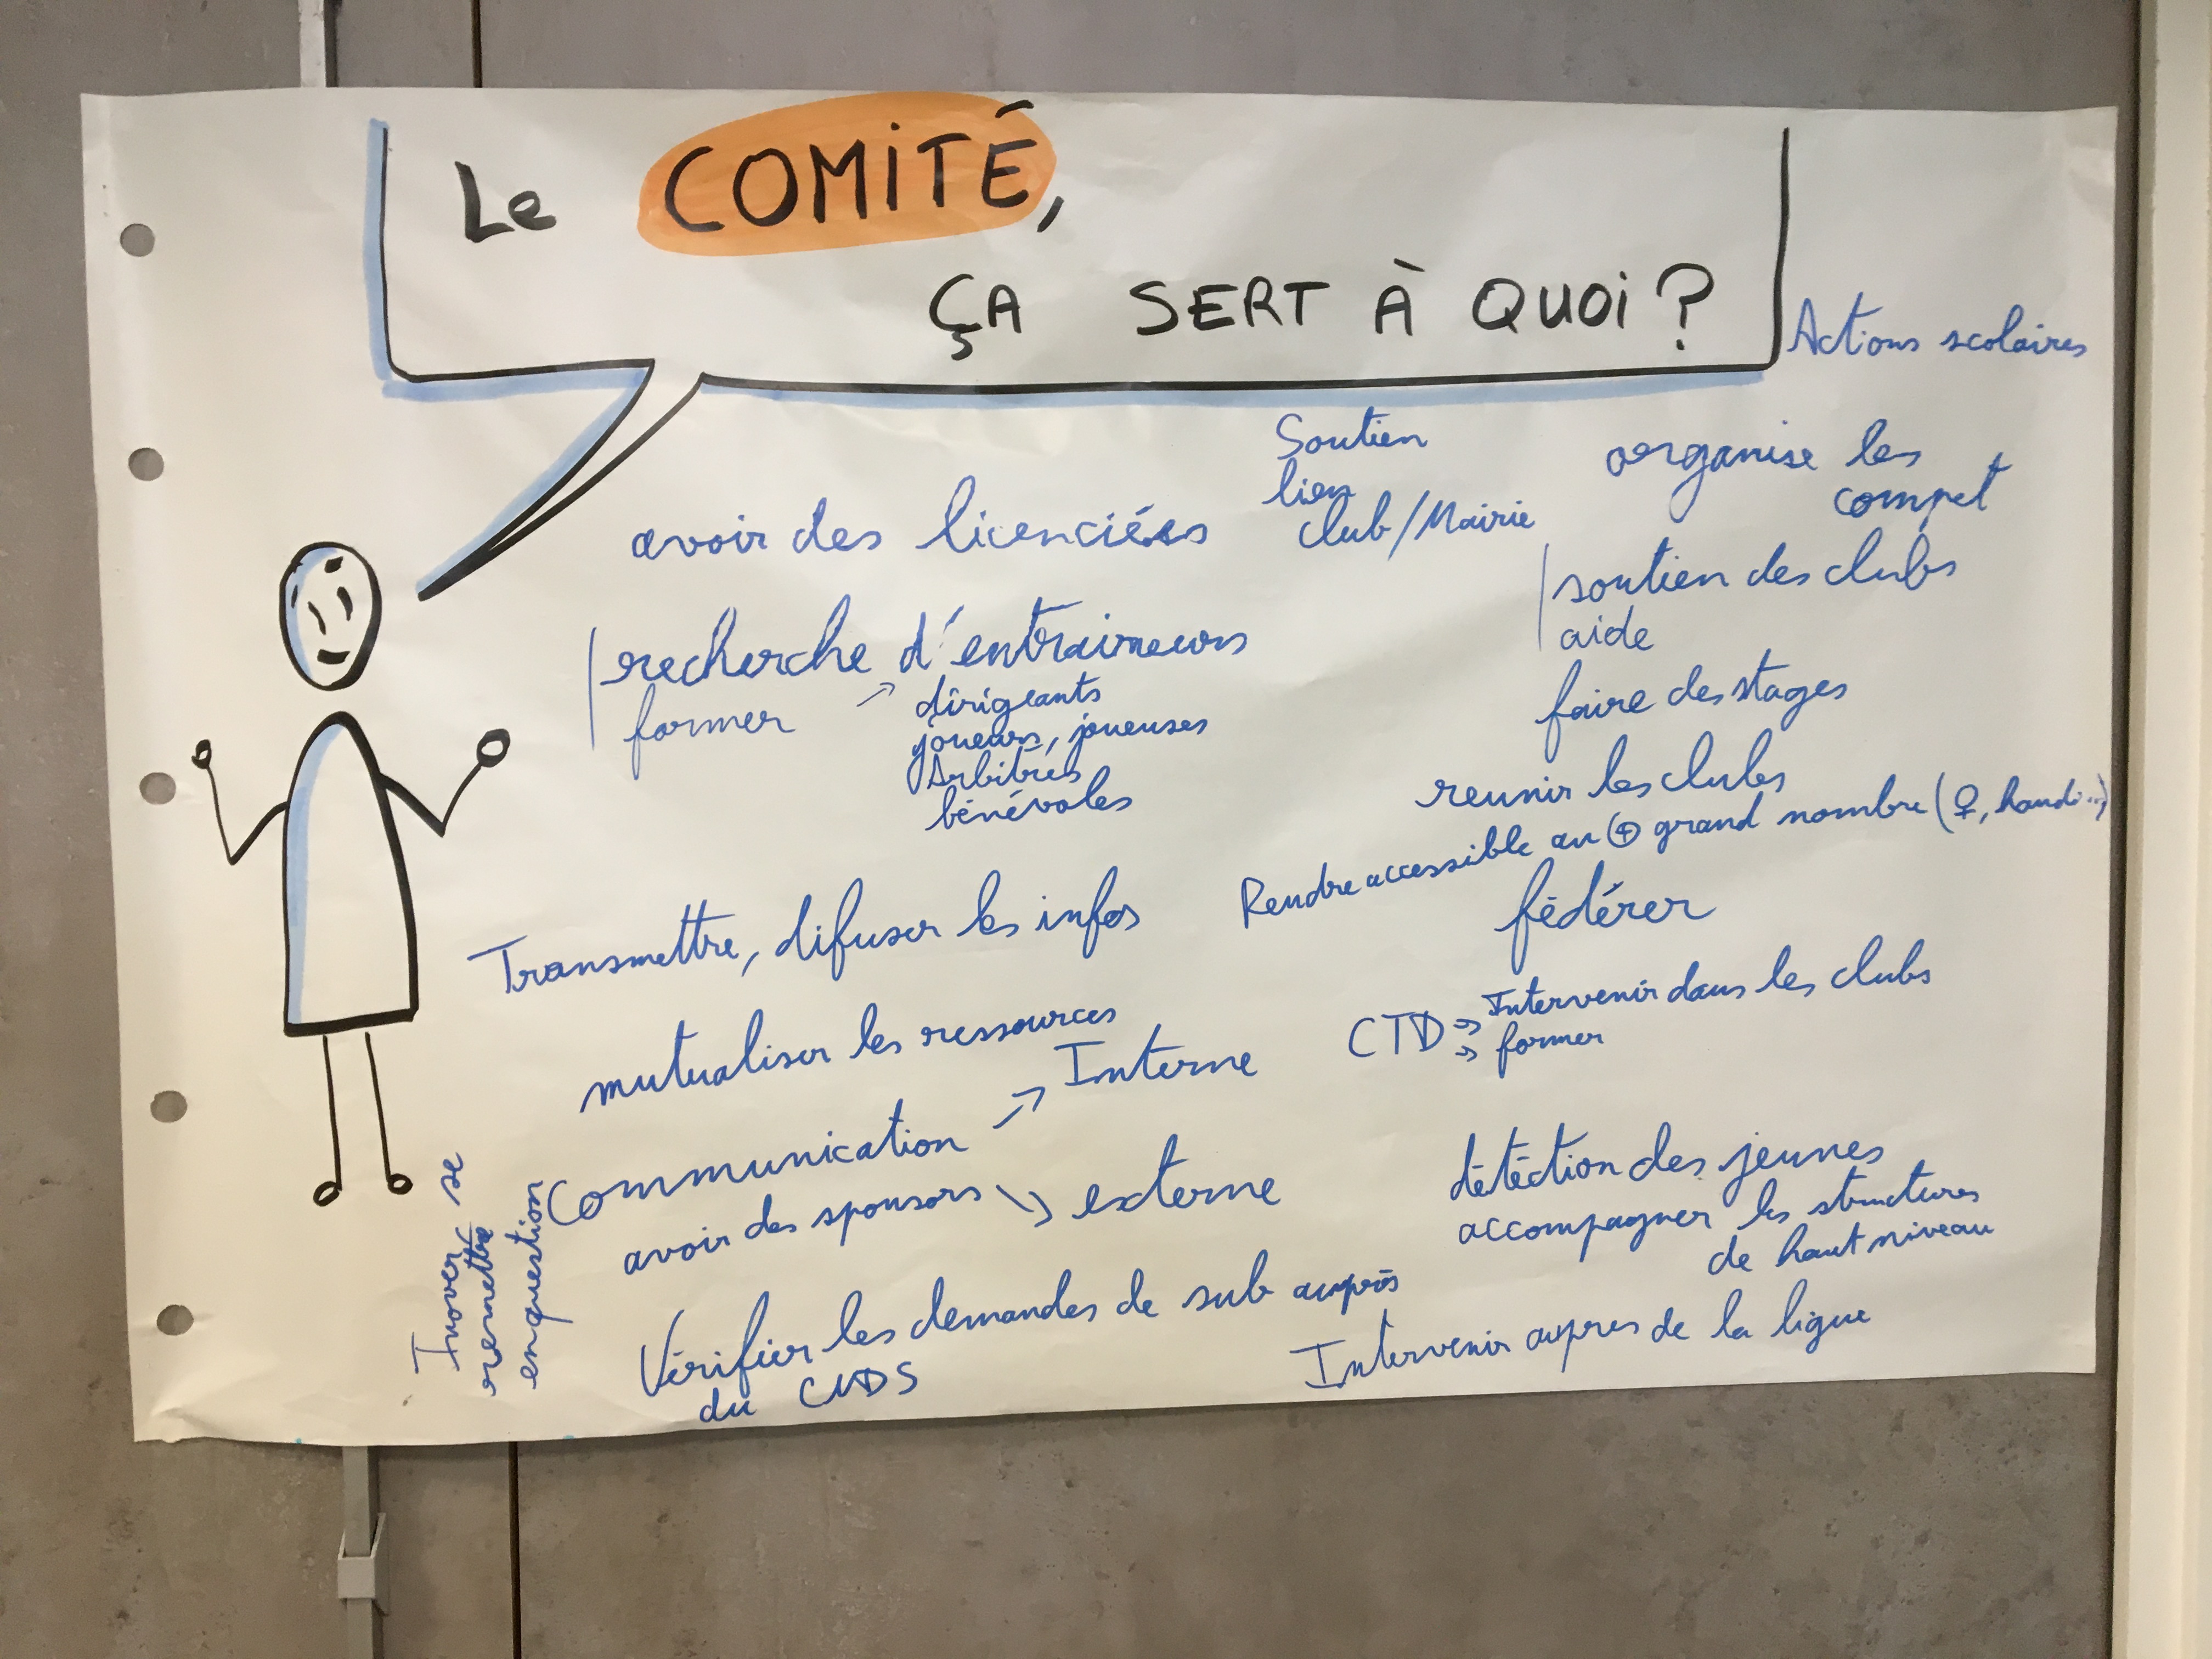 Le COMITÉ,
ÇA SERT À QUOI ?
Actions scolaires
Soutien
lien
club/Mairie
organise les
compet
avoir des licenciées
soutien des clubs
aide
recherche d'entraineurs
former
dirigeants
joueurs, joueuses
Arbitres
bénévoles
faire des stages
reunir les clubs
Rendre accessible au ⊕ grand nombre (♀, handi...)
fédérer
Transmettre, difuser les infos
CTD → Intervenir dans les clubs
→ former
mutualiser les ressources
Communication ↗ Interne
↘ externe
avoir des sponsors
détéction des jeunes
accompagner les structures
de haut niveau
Inover se
remettre
en question
Vérifier les demandes de sub auprès
du CNDS
Intervenir aupres de la ligue